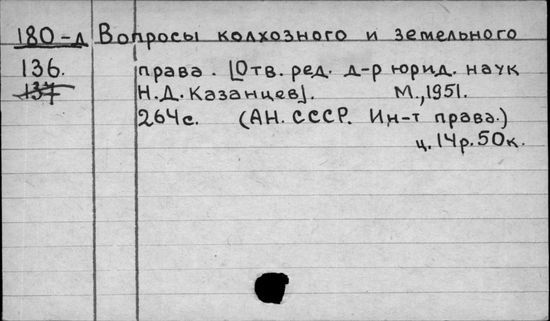 180-л Вопросы колхозного и земельного
136. права. [Отв. ред. д-р юрид. наук
137 Н.Д. Казанцев]. М., 1951.
264с. (АН. СССР. Ин-т права.)
ц. 14р. 50к.